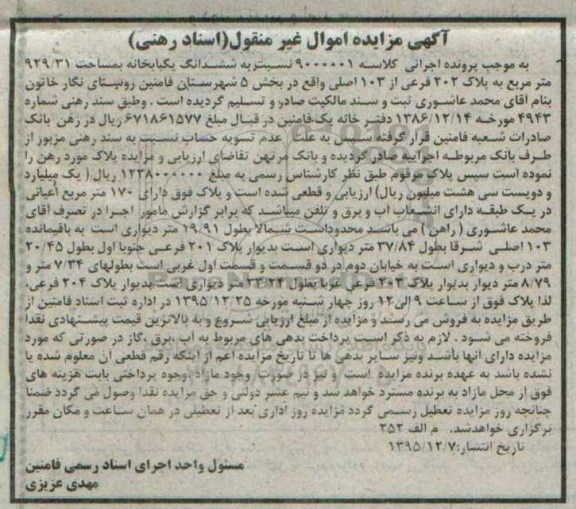 آگهی مزایده اموال غیر منقول(اسناد رهنی)
به موجب پرونده اجرائی کلاسه ۹۰۰۰۰۰۱ نسبت به ششدانگ یکبابخانه بمساحت ۹۲۹/۳۱
متر مربع به پلاک ۲۰۲ فرعی از ۱۰۳ اصلی واقع در بخش ۵ شهرستان فامنین روستای نگار خاتون
بنام آقای محمد عاشوری ثبت و سند مالکیت صادر و تسلیم گردیده است . وطبق سند رهنی شماره
۴۹۴۳ مورخه ۱۳۸۶/۱۲/۱۴ دفتر خانه یک فامنین در قبال مبلغ ۶۷۱۸۶۱۵۷۷ ریال در رهن بانک
صادرات شعبه فامنین قرار گرفته . سپس به علت عدم تسویه حساب نسبت به سند رهنی مزبور از
طرف بانک مربوطه اجرائیه صادر گردیده و بانک مرتهن تقاضای ارزیابی و مزایده پلاک مورد رهن را
نموده است سپس پلاک مرقوم طبق نظر کارشناس رسمی به مبلغ ۱۲۳۸۰۰۰۰۰۰ ریال ( یک میلیارد
و دویست سی هشت میلیون ریال) ارزیابی و قطعی شده است و پلاک فوق دارای ۱۷۰ متر مربع اعیانی
در یک طبقه دارای انشعاب آب و برق و تلفن میباشد که برابر گزارش مامور اجرا در تصرف آقای
محمد عاشوری ( راهن ) می باشد محدوداست شمالا بطول ۱۹/۹۱ متر دیواری است به باقیمانده
۱۰۳ اصلی شرقا بطول ۳۷/۸۴ متر دیواری است بدیوار پلاک ۲۰۱ فرعی جنوبا اول بطول ۲۰/۴۵
متر درب و دیواری است به خیابان دوم در دو قسمت و قسمت اول غربی است بطولهای ۷/۳۴ متر و
۸/۷۹ متر دیوار بدیوار پلاک ۲۰۳ فرعی غربا بطول ۲۲/۲۴ متر دیواری است بدیوار پلاک ۲۰۴ فرعی،
لذا پلاک فوق از ساعت ۹ الی ۱۲ روز چهار شنبه مورخه ۱۳۹۵/۱۲/۲۵ در اداره ثبت اسناد فامنین از
طریق مزایده به فروش می رسد و مزایده از مبلغ ارزیابی شروع و به بالاترین قیمت پیشنهادی نقدا
فروخته می شود . لازم به ذکر است پرداخت بدهی های مربوط به آب ،برق ،گاز در صورتی که مورد
مزایده دارای آنها باشد ونیز سایر بدهی ها تا تاریخ مزایده اعم از اینکه رقم قطعی آن معلوم شده یا
نشده باشد به عهده برنده مزایده است و نیز در صورت وجود مازاد وجوه پرداختی بابت هزینه های
فوق از محل مازاد به برنده مسترد خواهد شد و نیم عشر دولتی و حق مزایده نقدا وصول می گردد ضمنا
چنانچه روز مزایده تعطیل رسمی گردد مزایده روز اداری بعد از تعطیلی در همان ساعت و مکان مقرر
برگزاری خواهدشد. م الف ۲۵۲
تاریخ انتشار:۱۳۹۵/۱۲/۷
مسئول واحد اجرای اسناد رسمی فامنین
مهدی عزیزی